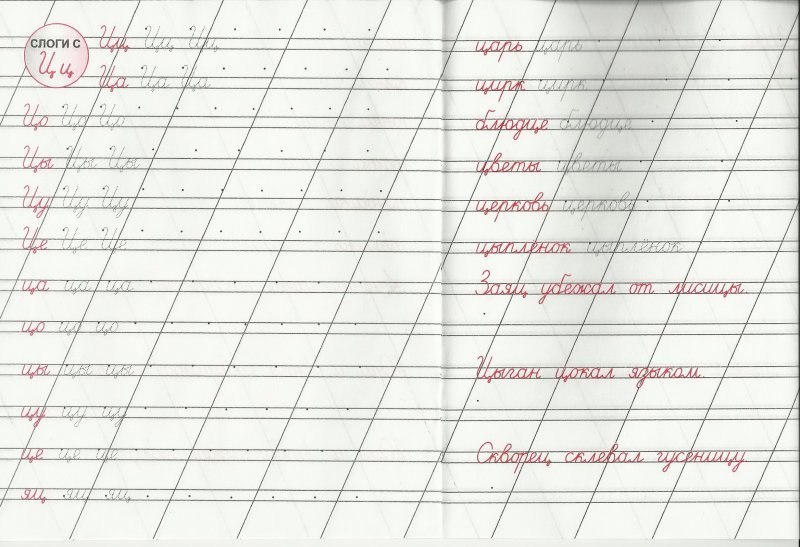 СЛОГИ С
Ц ц
Цц Цц Цц
Ца Ца Ца
Цо Цо Цо
Цы Цы Цы
Цу Цу Цу
Це Це Це
ца ца ца
цо цо цо
цы цы цы
цу цу цу
це це це
яц яц яц
царь царь
цирк цирк
блюдце блюдце
цветы цветы
церковь церковь
цыплёнок цыплёнок
Заяц убежал от лисицы.
Цыган цокал языком.
Скворец склевал гусеницу.